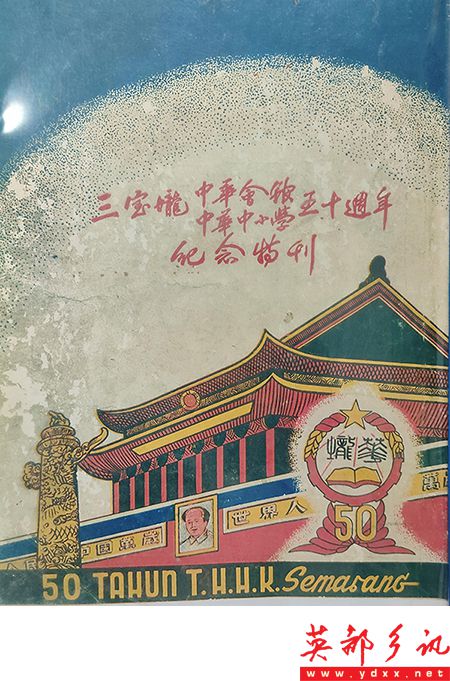 三宝壠中華會館五十週年
中華中小學
紀念特刊
壠華
50
中國萬歲
世界人
萬
50 TAHUN T.H.H.K. Semarang
英都乡讯
www.ydxx.net